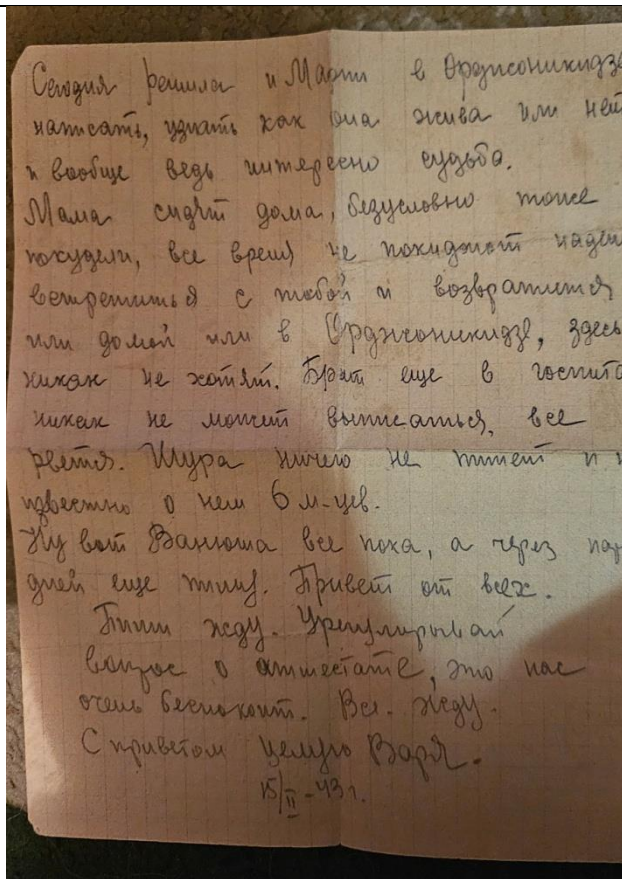 Сегодня решила и Марти в Орджоникидзе
написать, узнать как она жива или нет
и вообще ведь интересно судьба.
Мама сидят дома, безусловно тоже
похудели, все время не покидают наде
встретиться с тобой и возвратится
или домой или в Орджоникидзе, здесь
никак не хотят. Брат еще в госпита
никак не может выписаться, все
рвется. Шура ничего не пишет и н
известно о нем 6 м-цев.
Ну вот Ванюша все пока, а через пар
дней еще пишу. Привет от всех.
Пиши жду. Урегулировай
вопрос о аттестате, это нас
очень беспокоит. Все. Жду.
С приветом целую Варя.
15/II-43 г.